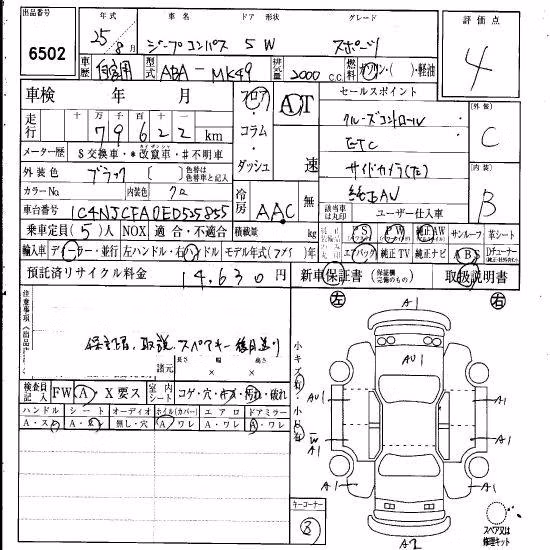 出品番号 年式 車名 ドア 形状 グレード 評価点
6502 25年8月 ジープコンパス 5W スポーツ 4
車歴 自家用 型式 ABA-MK49 排気量 2000 c.c. 燃料 ガソリン・( )・軽油
車検 年 月 フロア・コラム・ダッシュ AT 速 セールスポイント 外装 C
走行 十万 万 千 百 十 一
79622 km クルーズコントロール
メーター歴 S 交換車・* 改ざん車・# 不明車 ETC
外装色 ブラック ( ) 色替は色替車と記入 サイドカメラ(左) 内装 B
カラーNo. 内装色 クロ 冷房 AAC 無 純正AV
車台番号 1C4NJCFA0ED525855 該当車は丸印 ユーザー仕入車
乗車定員 (5)人 NOX 適合・不適合 積載量 kg PS PW 純正AW サンルーフ 革シート
輸入車 ディーラー・並行 左ハンドル・右ハンドル モデル年式(フメイ)年 エアバッグ 純正TV 純正ナビ ABS Dチューナー
預託済リサイクル料金 14,630円 新車保証書 取扱説明書
左 A1 右
注意事項(出品店)
保証書、取説、スペアキー後日送り
諸元 長さ × 幅 × 高さ
小キズ有・小凹有
AU1
AU1 A1
W
A1 A1
A1 A1
A2
検査員記入 FW A・X要ス 室内シート コゲ・穴・キズ・汚れ・破れ
ハンドル シート オーディオ ホイル(カバー) エアロ ドアミラー
A・スリ A・ス 無し・穴 A・ワレ A・ワレ A・ワレ
キーコーナー
3
スペア又は修理キット